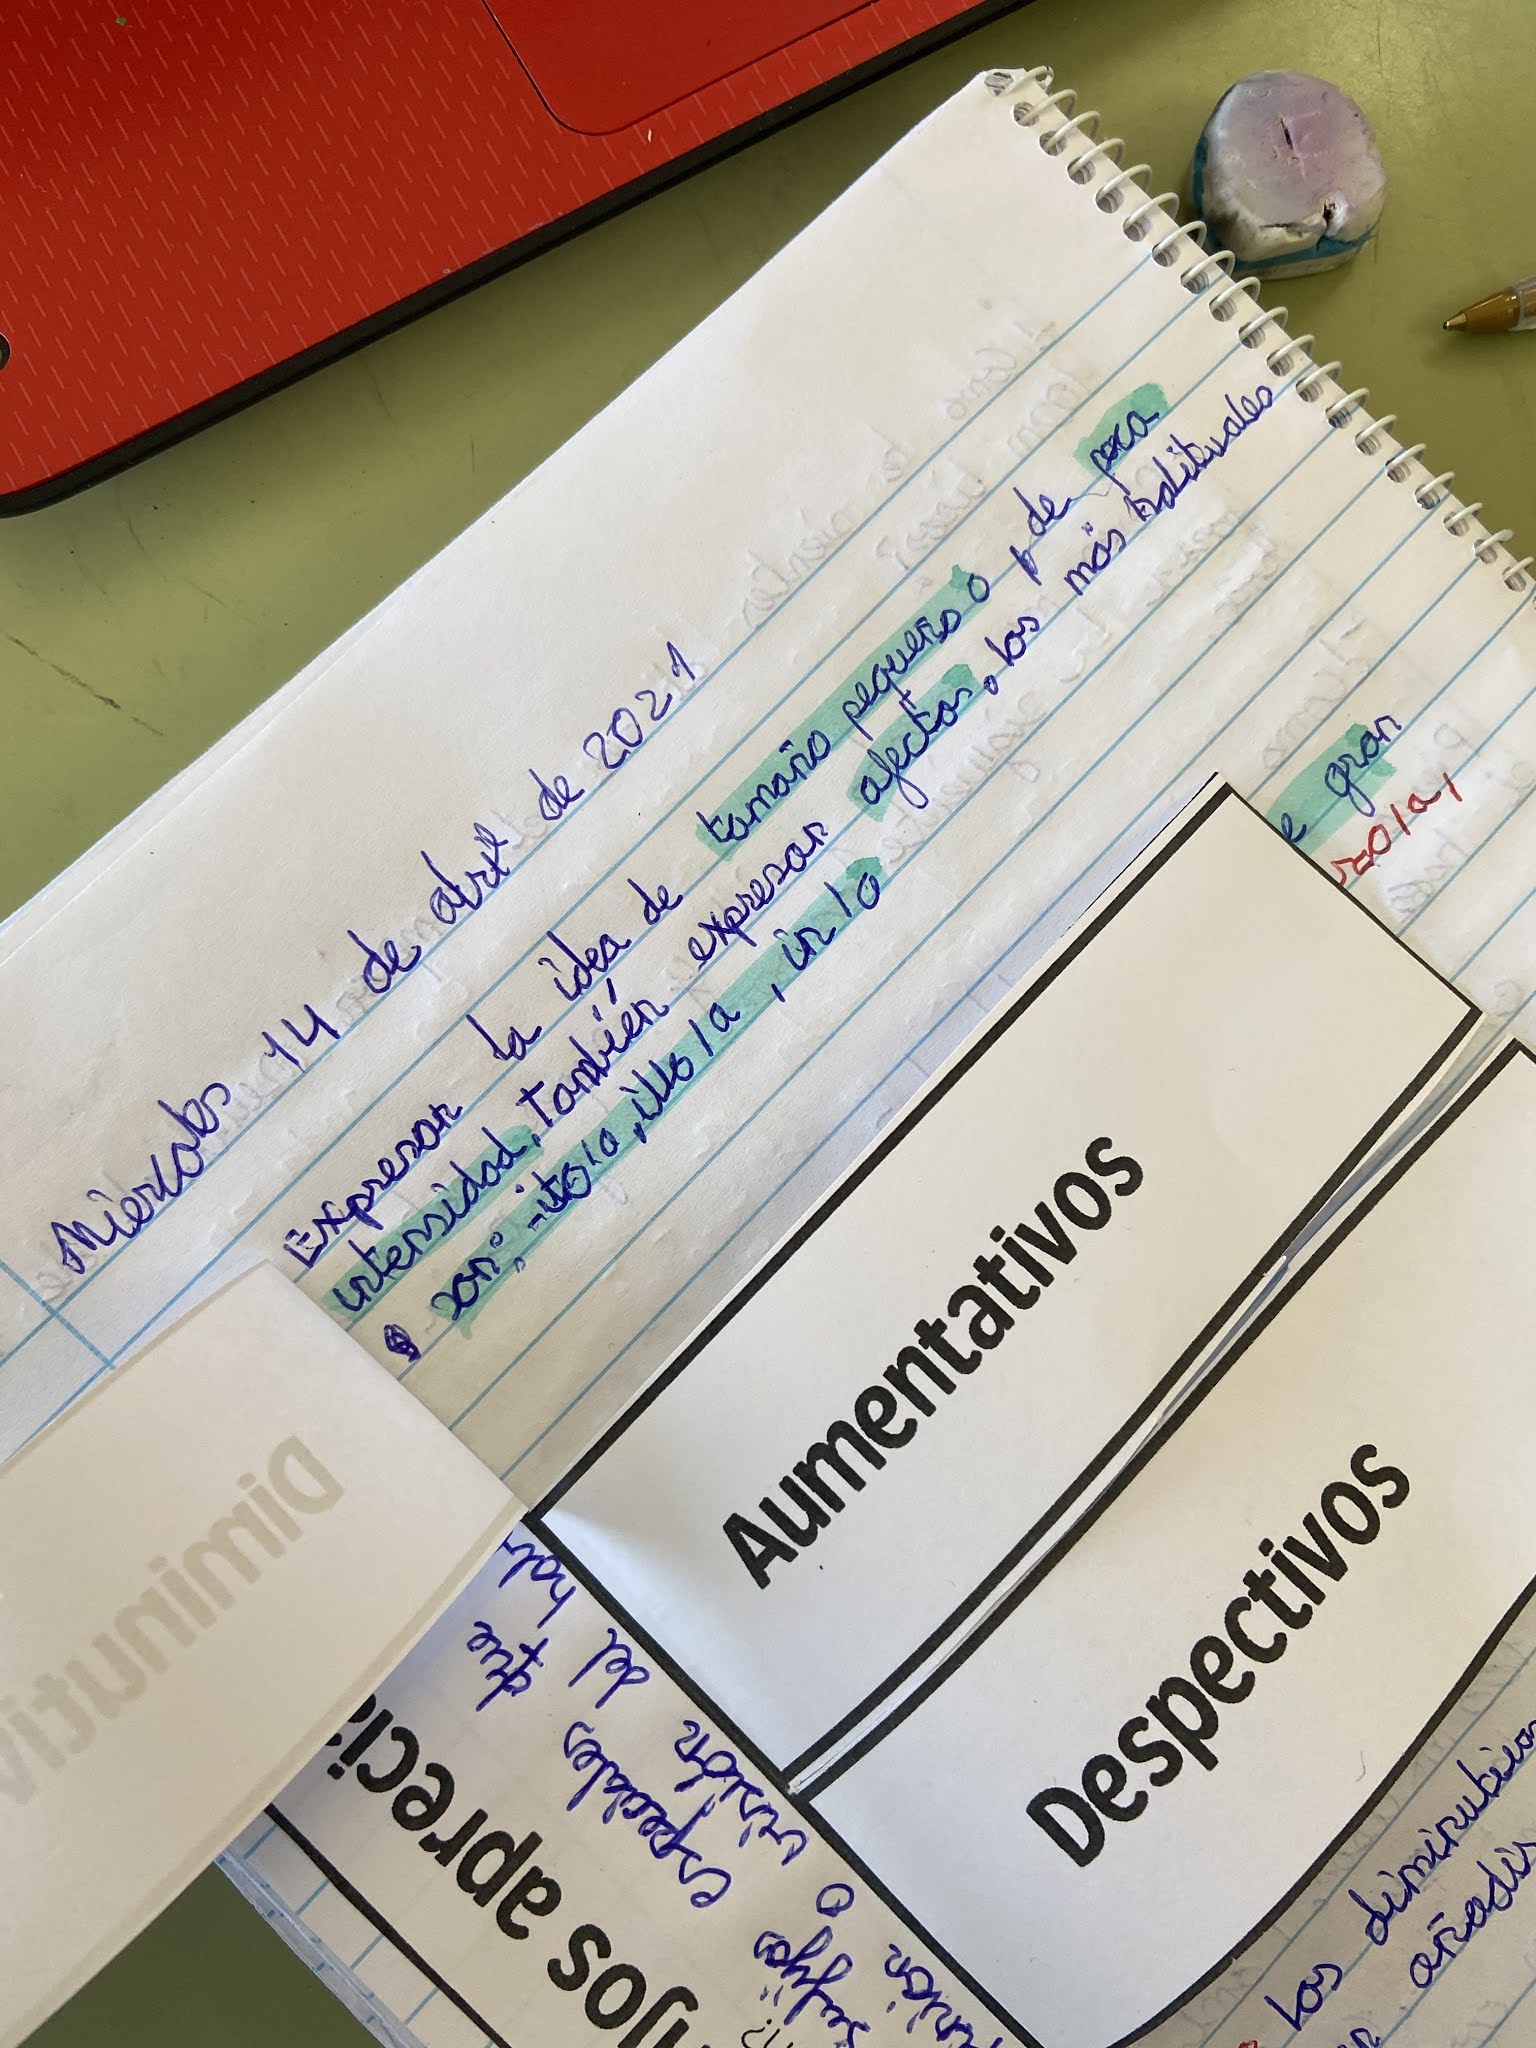 Miercoles 14 de abril de 2021
Expresar la idea de tamaño pequeño o de poca
intensidad, también expresar afectos, los más habituales
son: -ito/a, illo/a, in/a
e gran
Diminutiv
Aumentativos
Despectivos
jos apreci
especiales que
o visión del
los diminutivos
añadir